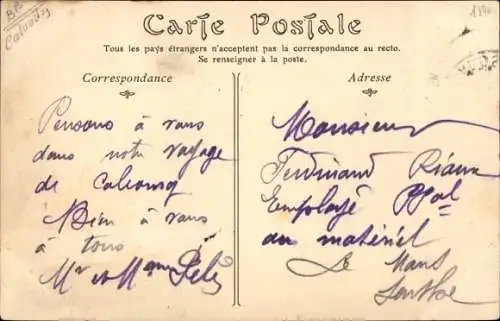 Calvados
Carte Postale
Tous les pays étrangers n'acceptent pas la correspondance au recto.
Se renseigner à la poste.
Correspondance
Pensons à vous
dans notre voyage
de Cabourg
Bien à vous
à tous
Mr et Mme
Adresse
Monsieur
Ferdinand
Employé
au matériel
Le Mans
Sarthe